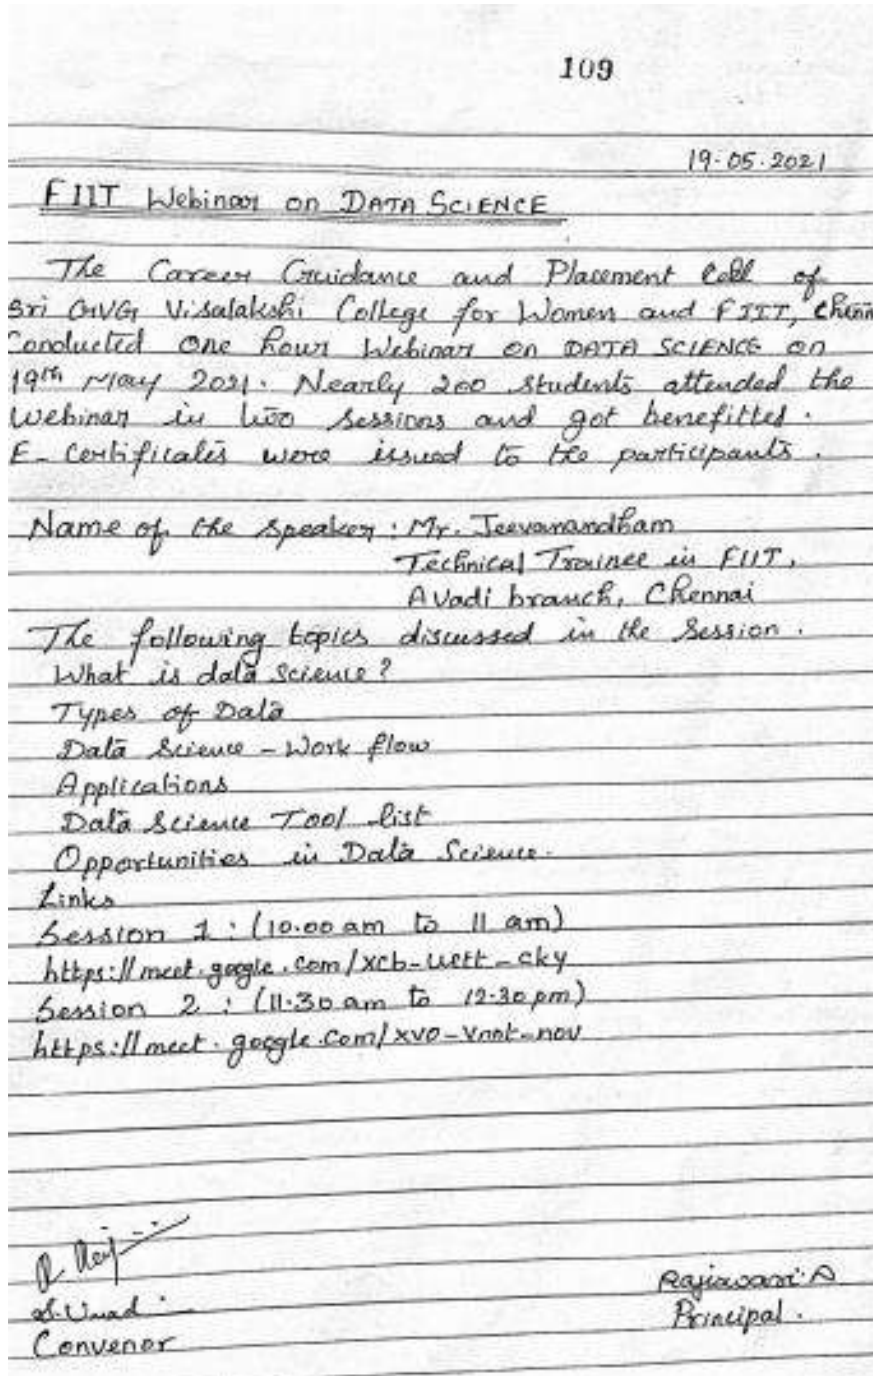 109
19.05.2021
FIIT Webinar on DATA SCIENCE
The Career Guidance and Placement Cell of
Sri GVG Visalakshi College for Women and FIIT, Chenn
Conducted One hour Webinar on DATA SCIENCE on
19th May 2021. Nearly 200 students attended the
Webinar in two sessions and got benefitted.
E-Certificates were issued to the participants.
Name of the Speaker: Mr. Jeevanandham
Technical Trainee in FIIT,
Avadi branch, Chennai
The following topics discussed in the Session.
What is data science?
Types of Data
Data Science - Work flow
Applications
Data Science Tool list
Opportunities in Data Science.
Links
Session 1: (10.00 am to 11 am)
https://meet.google.com/xcb-uett-cky
Session 2: (11.30 am to 12.30 pm)
https://meet.google.com/xvo-vnnt-nov
Convenor
Principal.